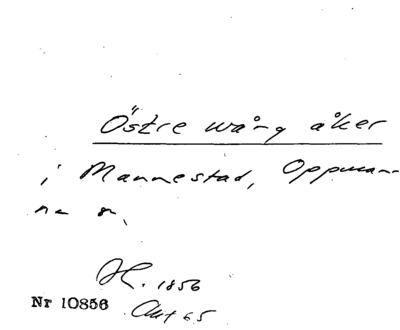 Östre wång åker
i Mannestad, Oppman-
na s.
H. 1856
Nr 10856 Akt 65